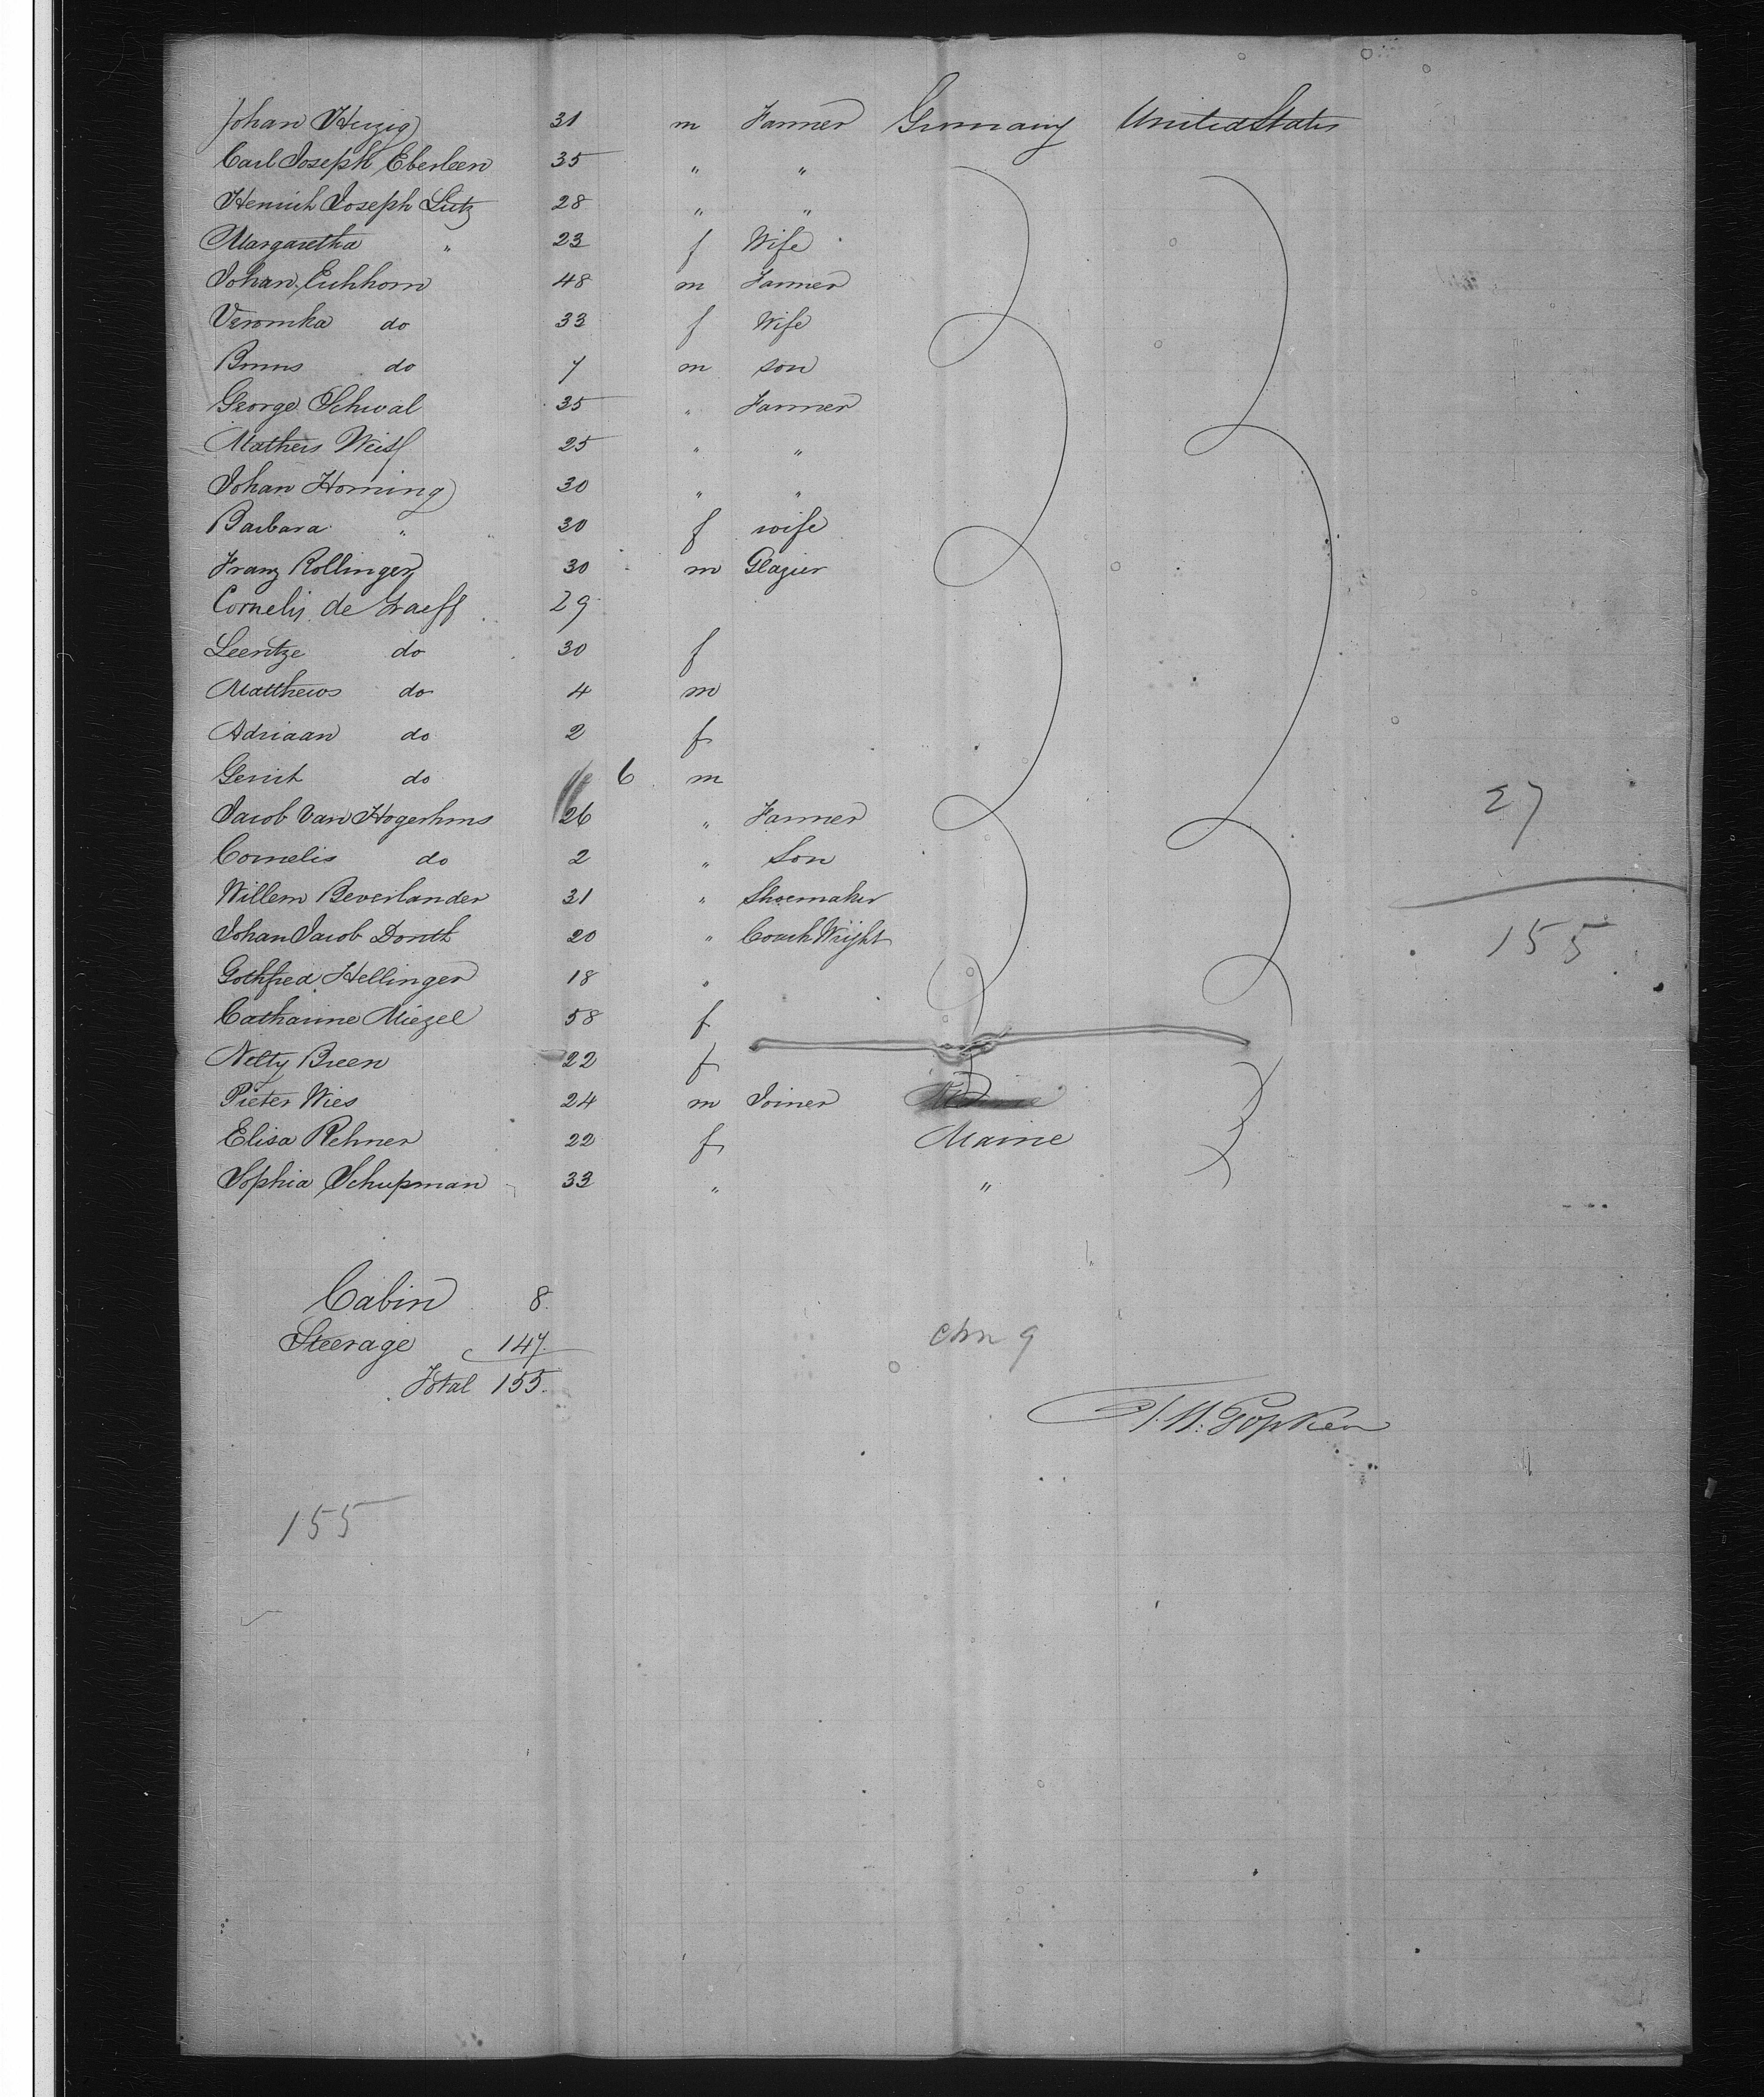 Johan Herzig 31 m Farmer Germany United States
Carl Joseph Eberleen 35 " "
Henrich Joseph Lutz 28 " "
Margaretha " 23 f Wife
Johan Eichhorn 48 m Farmer
Veronika do 33 f Wife
Bruns do 7 m son
George Schwal 35 " Farmer
Matheis Weiss 25 " "
Johan Horning 30 " "
Barbara " 30 f wife
Franz Rollinger 30 m Glazier
Cornelis de Graeff 29
Leentze do 30 f
Matthews do 4 m
Adriaan do 2 f
Gerrit do 6 m
27
Jacob Van Hogerhms 26 " Farmer
Cornelis do 2 " Son
Willem Beverlander 31 " Shoemaker
Johan Jacob Donth 20 " Coach Wright
155
Gothfried Hellinger 18 "
Catharine Miezel 58 f
Netty Breen 22 f
Pieter Wies 24 m Joiner
Elisa Rehner 22 f Maine
Sophia Schupman 33 " "
Cabin 8.
Steerage 147.
Chn 9
Total 155.
155